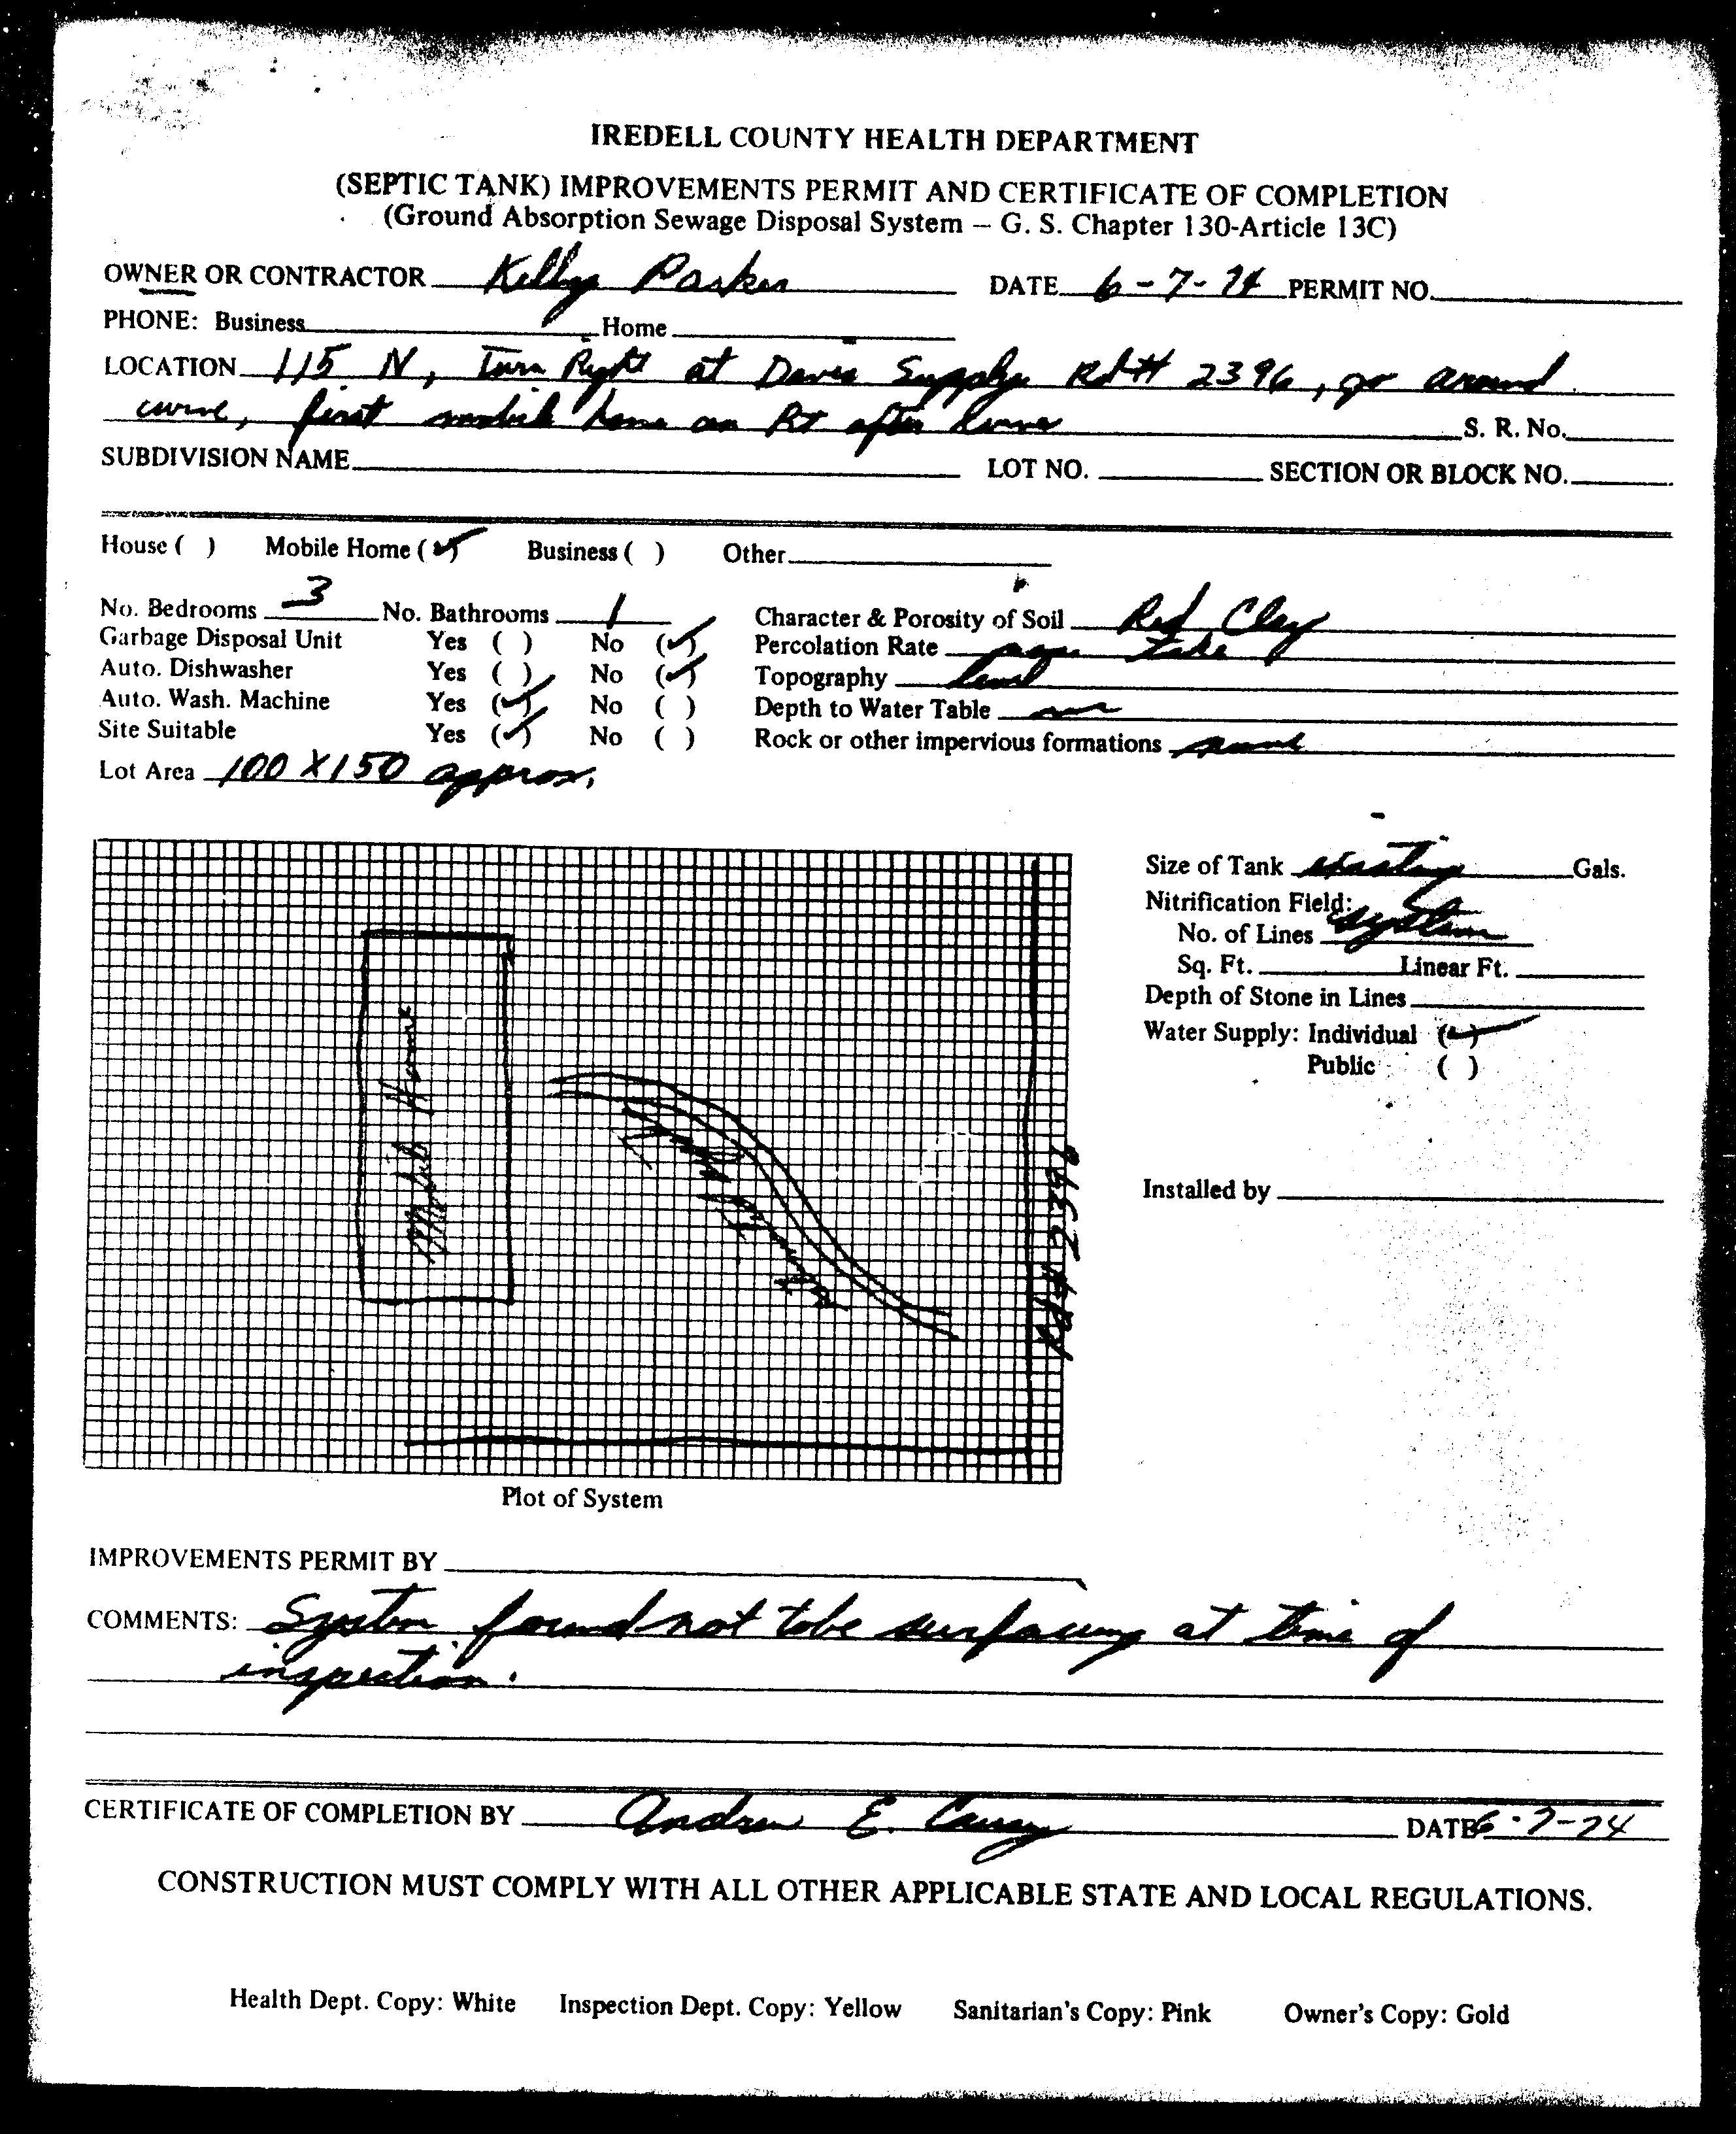 IREDELL COUNTY HEALTH DEPARTMENT
(SEPTIC TANK) IMPROVEMENTS PERMIT AND CERTIFICATE OF COMPLETION
(Ground Absorption Sewage Disposal System – G. S. Chapter 130-Article 13C)
OWNER OR CONTRACTOR Kelly Parker DATE 6-7- PERMIT NO.
PHONE: Business Home
LOCATION 115 N, Turn Right at Davis Supply Rd# 2396, go around
curve, first mobile home on Rt after curve S. R. No.
SUBDIVISION NAME LOT NO. SECTION OR BLOCK NO.
House ( ) Mobile Home (✓) Business ( ) Other
No. Bedrooms 3 No. Bathrooms 1 Character & Porosity of Soil Red Clay
Garbage Disposal Unit Yes ( ) No (✓) Percolation Rate
Auto. Dishwasher Yes ( ) No (✓) Topography level
Auto. Wash. Machine Yes (✓) No ( ) Depth to Water Table
Site Suitable Yes (✓) No ( ) Rock or other impervious formations
Lot Area 100 X 150 approx.
Size of Tank existing Gals.
Nitrification Field:
No. of Lines system
Sq. Ft. Linear Ft.
Depth of Stone in Lines
Water Supply: Individual (✓)
Public ( )
Mobile Home
Rd# 2396
Installed by
Plot of System
IMPROVEMENTS PERMIT BY
COMMENTS: System found not to be surfacing at time of
inspection.
CERTIFICATE OF COMPLETION BY Andrew E. DATE 6-7-
CONSTRUCTION MUST COMPLY WITH ALL OTHER APPLICABLE STATE AND LOCAL REGULATIONS.
Health Dept. Copy: White Inspection Dept. Copy: Yellow Sanitarian's Copy: Pink Owner's Copy: Gold